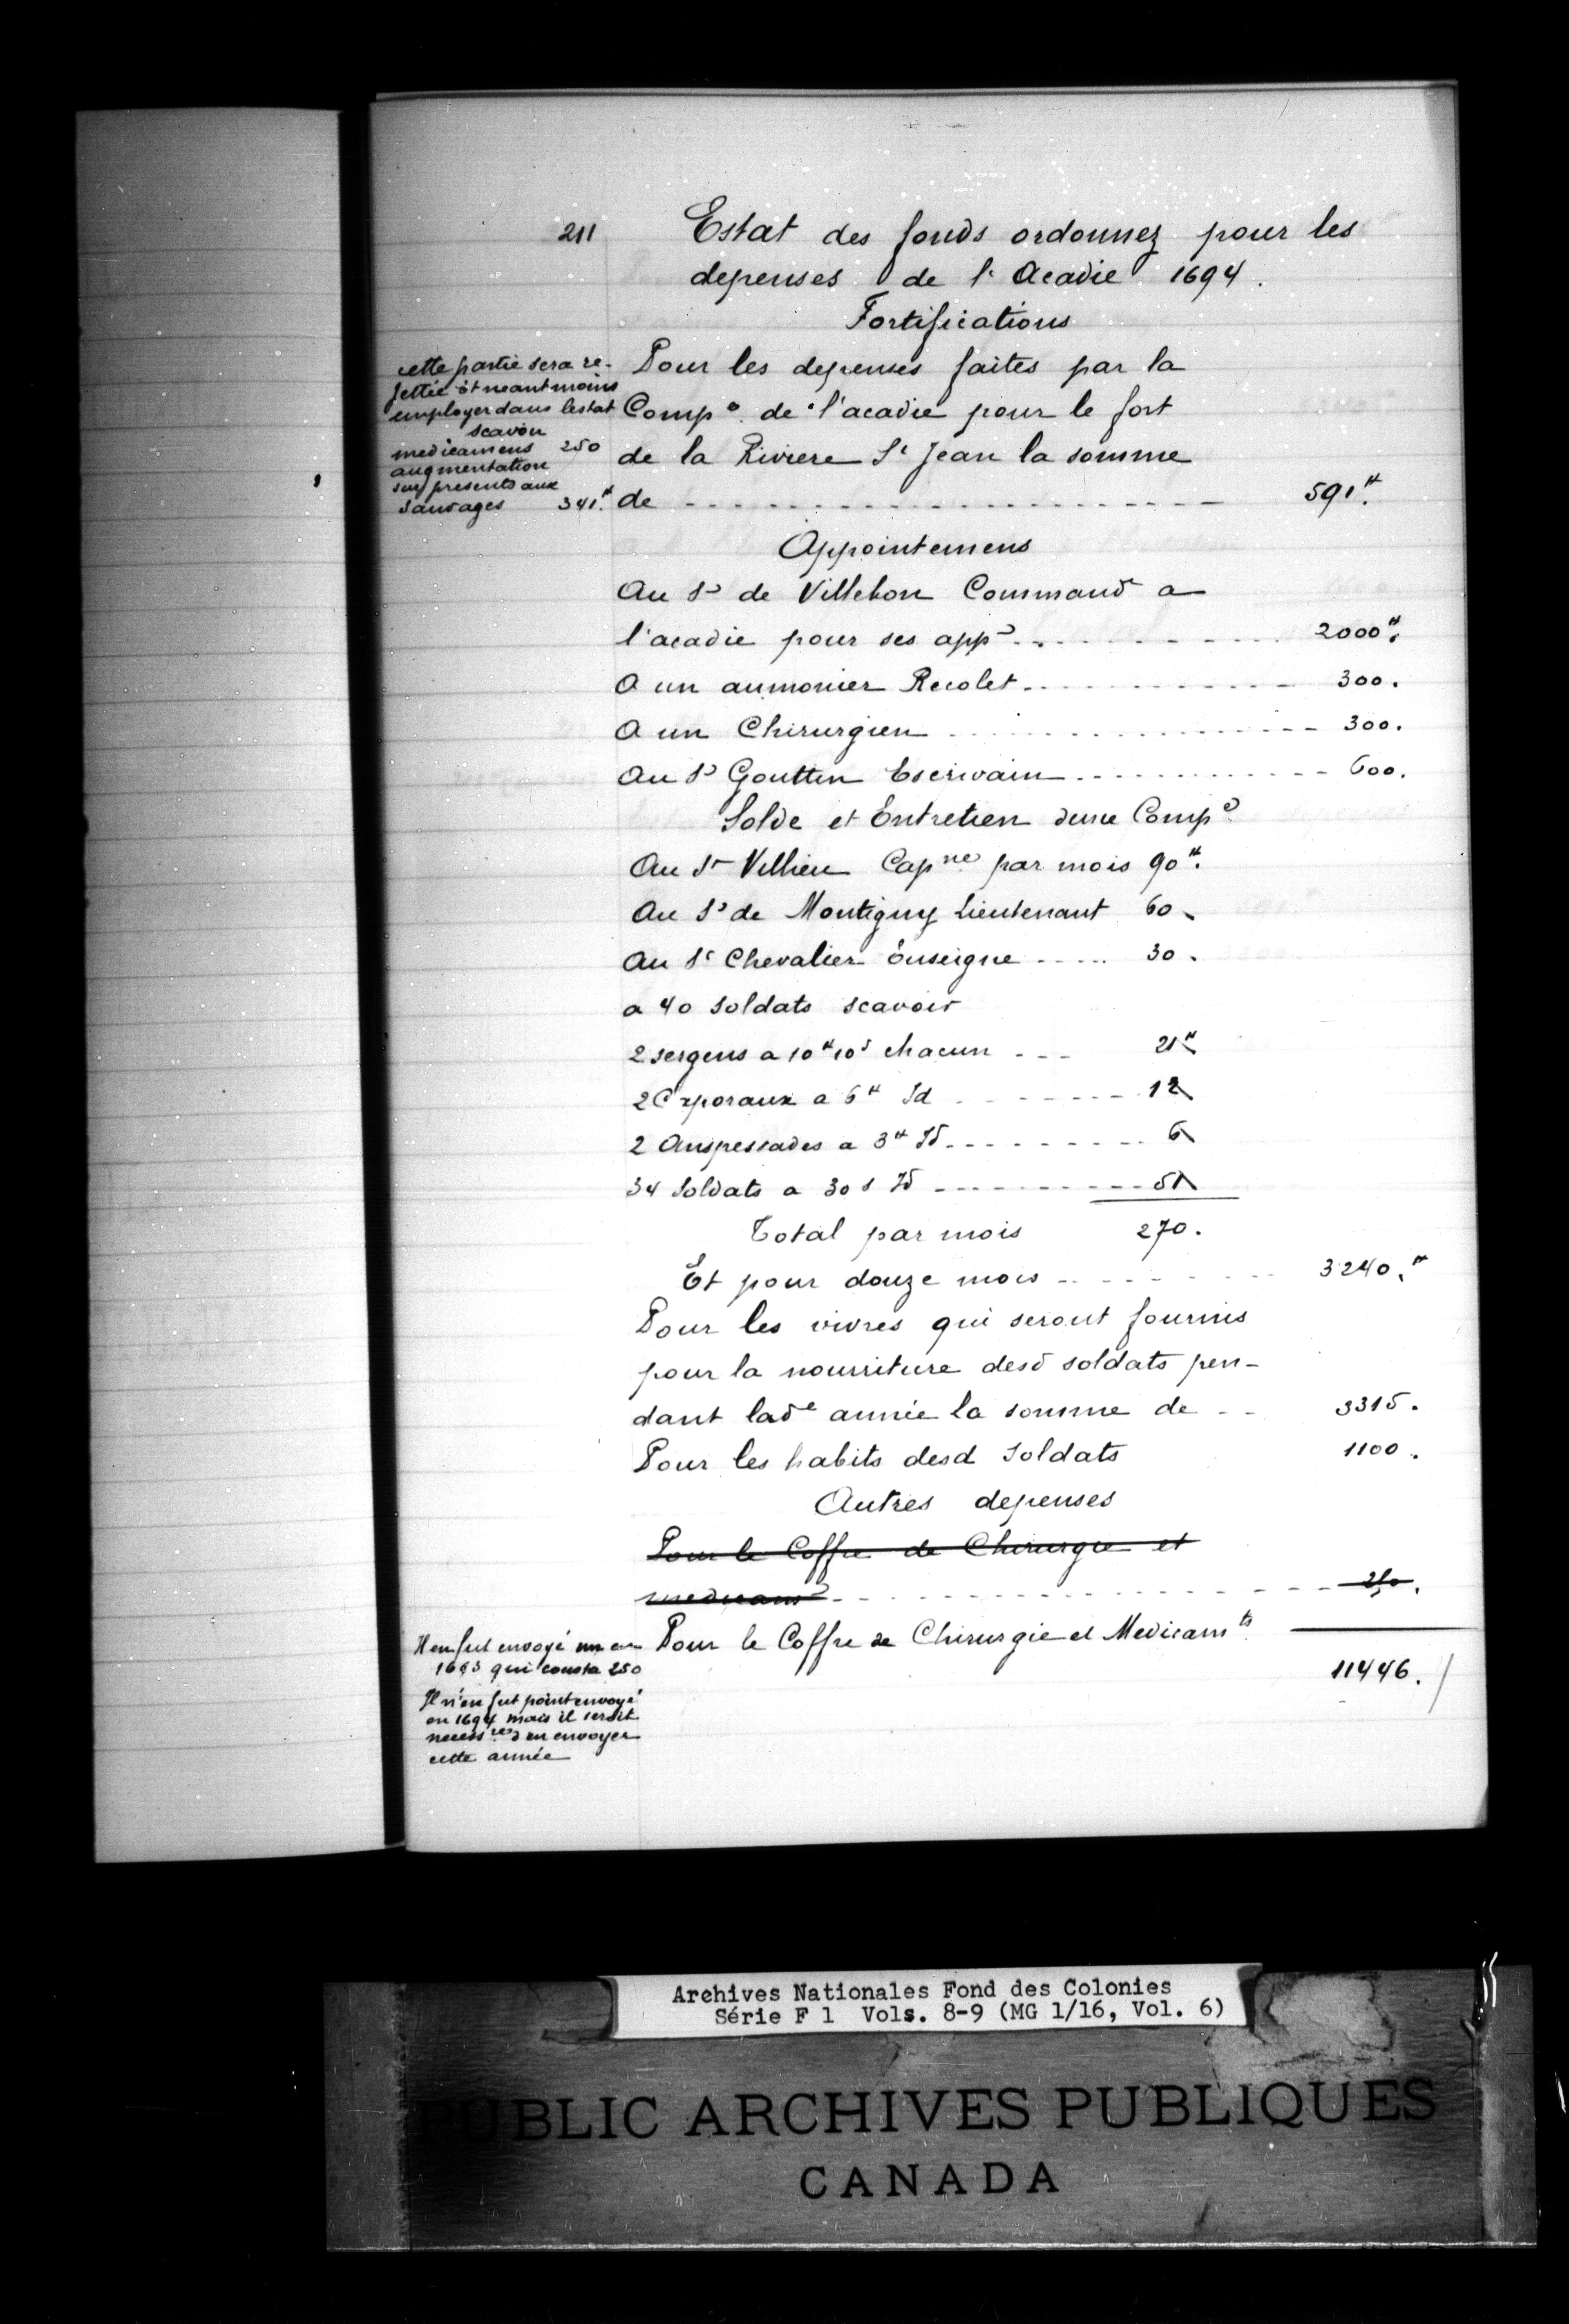 211
Estat des fonds ordonnez pour les
depenses de l'Acadie 1694.
Fortifications
cette partie sera re-
jettée et neantmoins
employer dans lestat
scavoir
medicamens 250
augmentation
sur presents aux
sauvages 341.ᵗᵗ
Pour les depenses faites par la
Compᵉ. de l'acadie pour le fort
de la Riviere Sᵗ Jean la somme
de - - - - - - - - - - 591.ᵗᵗ
Appointemens
Au Sʳ de Villebon Commandᵗ a
l'acadie pour ses appᵗˢ - - - - - 2000.ᵗᵗ
A un aumonier Recolet - - - - - 300.
A un Chirurgien - - - - - 300.
Au Sʳ Goutten Escrivain - - - - - 600.
Solde et Entretien dune Compᵉ
Au Sʳ Villieu Capⁿᵉ par mois 90.ᵗᵗ
Au Sʳ de Montigny Lieutenant 60
Au Sʳ Chevalier Enseigne - - - 30.
a 40 soldats scavoir
2 sergens a 10ᵗᵗ 10ˢ chacun - - - 21ᵗᵗ
2 Caporaux a 6ᵗᵗ Id - - - - 12
2 Anspessades a 3ᵗᵗ Id - - - - 6
34 Soldats a 30 s Id - - - - 51
Total par mois 270.
Et pour douze mois - - - - - 3240.ᵗᵗ
Pour les vivres qui seront fournis
pour la nourriture desd soldats pen-
dant ladᵉ année la somme de - - 3315.
Pour les habits desd soldats 1100.
Autres depenses
Pour le Coffre de Chirurgie et
medicamˢ - - - - - - 250.
Il en fut envoyé un en
1693 qui cousta 250
Il n'en fut point envoyé
en 1694 mais il seroit
necessʳᵉ d'en envoyer
cette année
Pour le Coffre de Chirurgie et Medicamᵗˢ
11446.
Archives Nationales Fond des Colonies
Série F 1 Vols. 8-9 (MG 1/16, Vol. 6)
PUBLIC ARCHIVES PUBLIQUES
CANADA